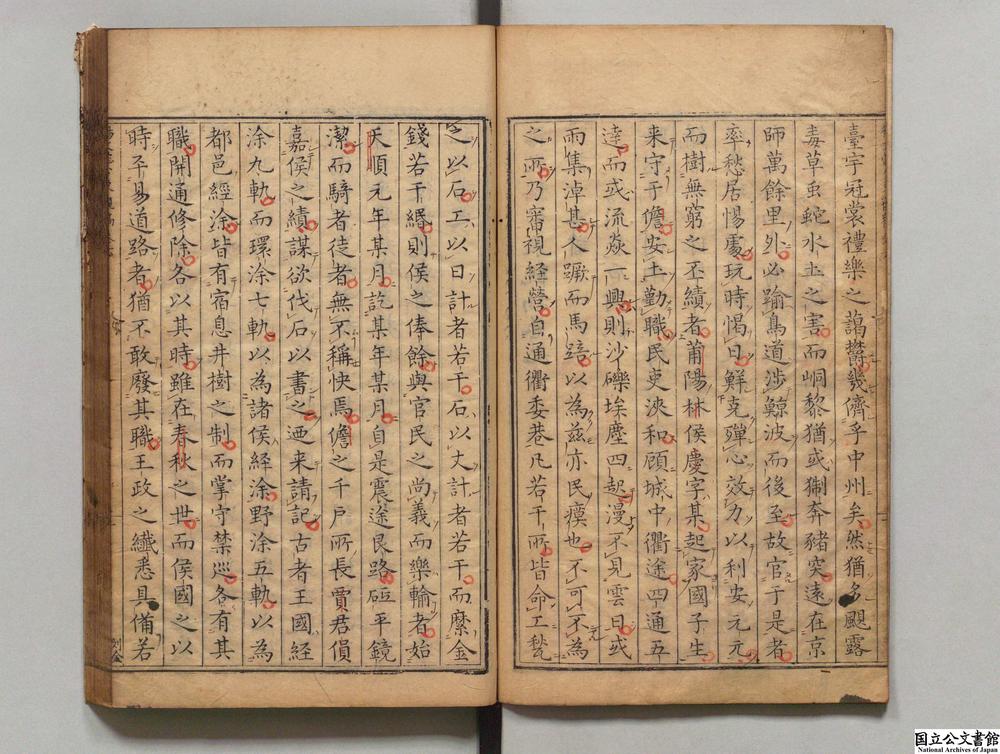 臺宇冠裳禮樂之藹欝幾儕乎中州矣然猶多颶露
毒草虫蛇水土之害而峒黎猶或猘奔豬突遠在京
師萬餘里外必踰鳥道涉鯨波而後至故官于是者
率愁居惕處玩時愒日鮮克殫心效力以利安元元
而樹無窮之丕績者莆陽林侯慶字某起家國子生
来守于儋安土勤職民吏浹和顧城中衢途四通五
逹而或流猋一興則沙礫埃塵四起漫不見雲日或
雨集淖甚人蹶而馬踣以為兹亦民瘼也不可不為
之所乃審視経營自通衢委巷凡若干所皆命工甃
之以石工以日計者若干石以丈計者若干而縻金
錢若干緡則侯之俸餘與官民之尚義而樂輸者始
天順元年某月訖某年某月自是震途艮路砥平鏡
潔而騎者徒者無不稱快焉儋之千戶所長賈君俱
嘉侯之績謀欲伐石以書之迺来請記古者王國経
涂九軌而環涂七軌以為諸侯経涂野涂五軌以為
都邑經涂皆有宿息井樹之制而掌守禁巡各有其
職開通修除各以其時雖在春秋之世而侯國之以
時平易道路者猶不敢廢其職王政之纖悉具備若
国立公文書館
National Archives of Japan